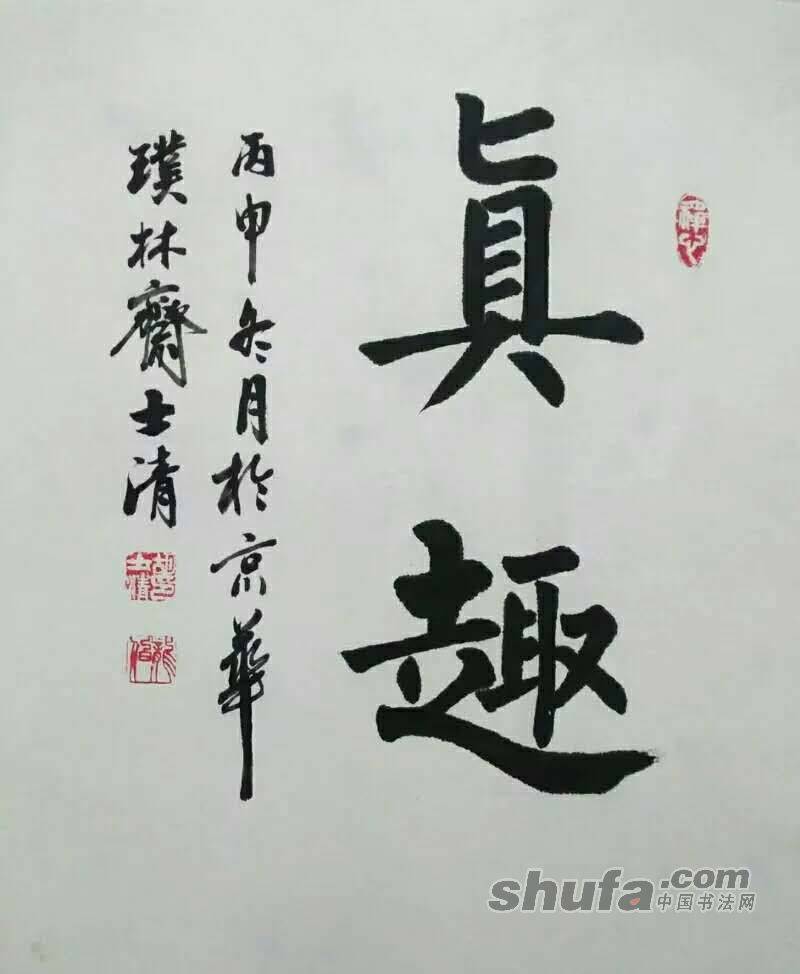 眞趣
丙申冬月於京華
璞林齋士清
禪心
shufa.com
中国书法网